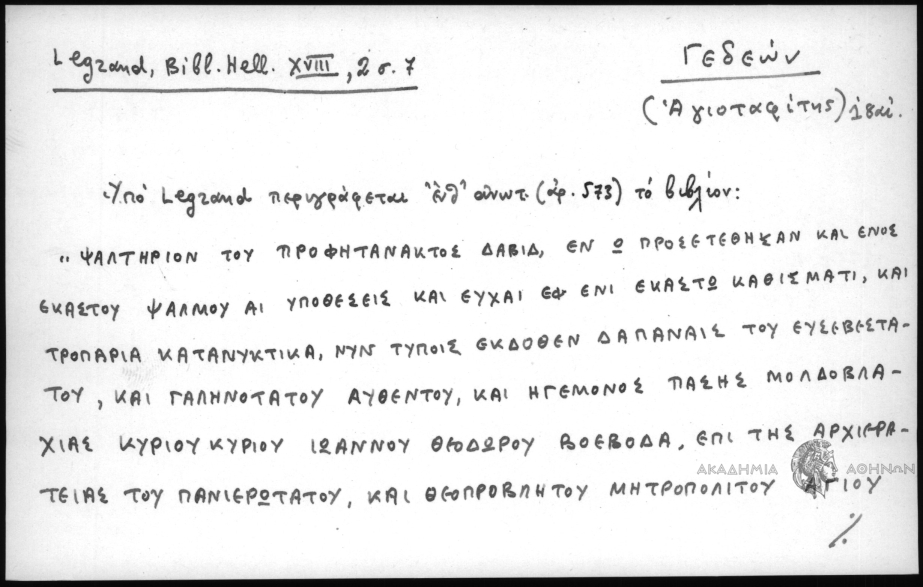 Legrand, Bibl. Hell. XVIII, 2 σ. 7
Γεδεών
(Ἁγιοταφίτης) 18 αἰ.
Ὑπό Legrand περιγράφεται "ἐνθ' ἀνωτ. (ἀρ. 573) τό βιβλίον:
"ΨΑΛΤΗΡΙΟΝ ΤΟΥ ΠΡΟΦΗΤΑΝΑΚΤΟΣ ΔΑΒΙΔ, ΕΝ Ω ΠΡΟΣΕΤΕΘΗΣΑΝ ΚΑΙ ΕΝΟΣ
ΕΚΑΣΤΟΥ ΨΑΛΜΟΥ ΑΙ ΥΠΟΘΕΣΕΙΣ ΚΑΙ ΕΥΧΑΙ ΕΦ ΕΝΙ ΕΚΑΣΤΩ ΚΑΘΙΣΜΑΤΙ, ΚΑΙ
ΤΡΟΠΑΡΙΑ ΚΑΤΑΝΥΚΤΙΚΑ, ΝΥΝ ΤΥΠΟΙΣ ΕΚΔΟΘΕΝ ΔΑΠΑΝΑΙΣ ΤΟΥ ΕΥΣΕΒΕΣΤΑ-
ΤΟΥ, ΚΑΙ ΓΑΛΗΝΟΤΑΤΟΥ ΑΥΘΕΝΤΟΥ, ΚΑΙ ΗΓΕΜΟΝΟΣ ΠΑΣΗΣ ΜΟΛΔΟΒΛΑ-
ΧΙΑΣ ΚΥΡΙΟΥ ΚΥΡΙΟΥ ΙΩΑΝΝΟΥ ΘΕΟΔΩΡΟΥ ΒΟΕΒΟΔΑ, ΕΠΙ ΤΗΣ ΑΡΧΙΕΡΑ-
ΤΕΙΑΣ ΤΟΥ ΠΑΝΙΕΡΩΤΑΤΟΥ, ΚΑΙ ΘΕΟΠΡΟΒΛΗΤΟΥ ΜΗΤΡΟΠΟΛΙΤΟΥ ΑΓΙΟΥ
ΑΚΑΔΗΜΙΑ ΑΘΗΝΩΝ
./.